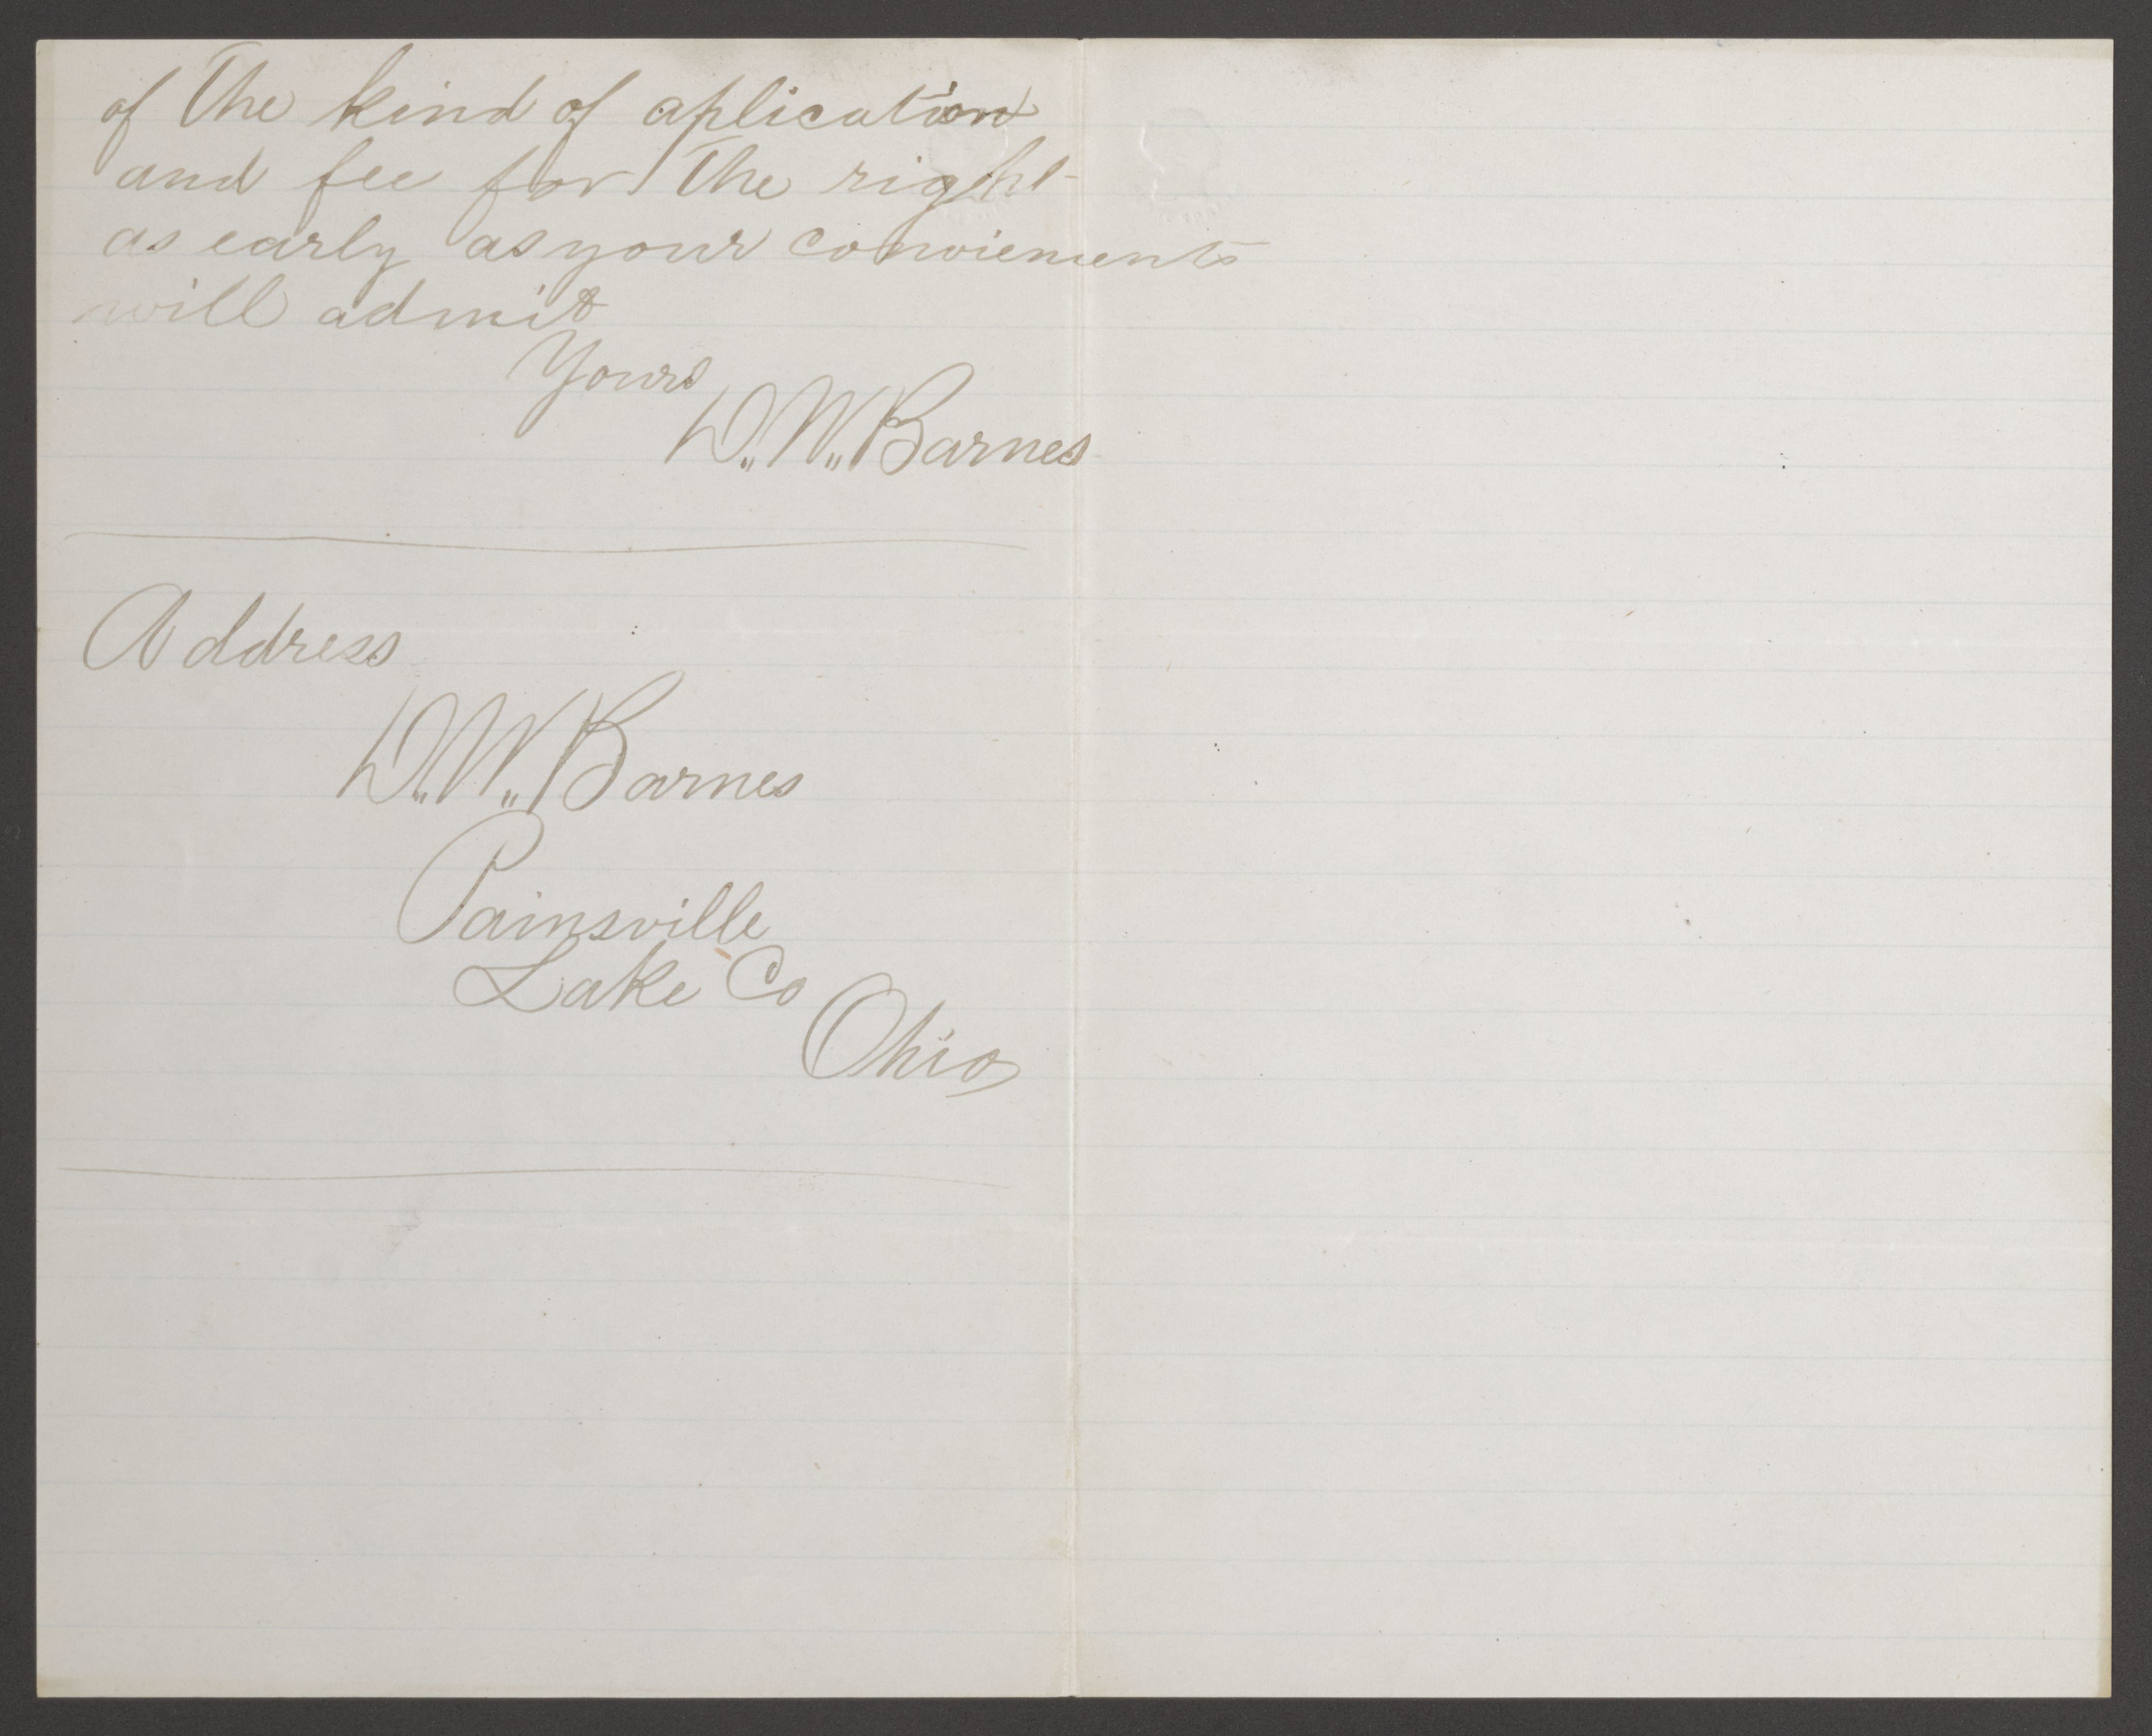 of The kind of aplication
and fee for The right
as early as your convienients
will admit
Yours
D. W. Barnes
Address
D. W. Barnes
Painsville
Lake Co
Ohio